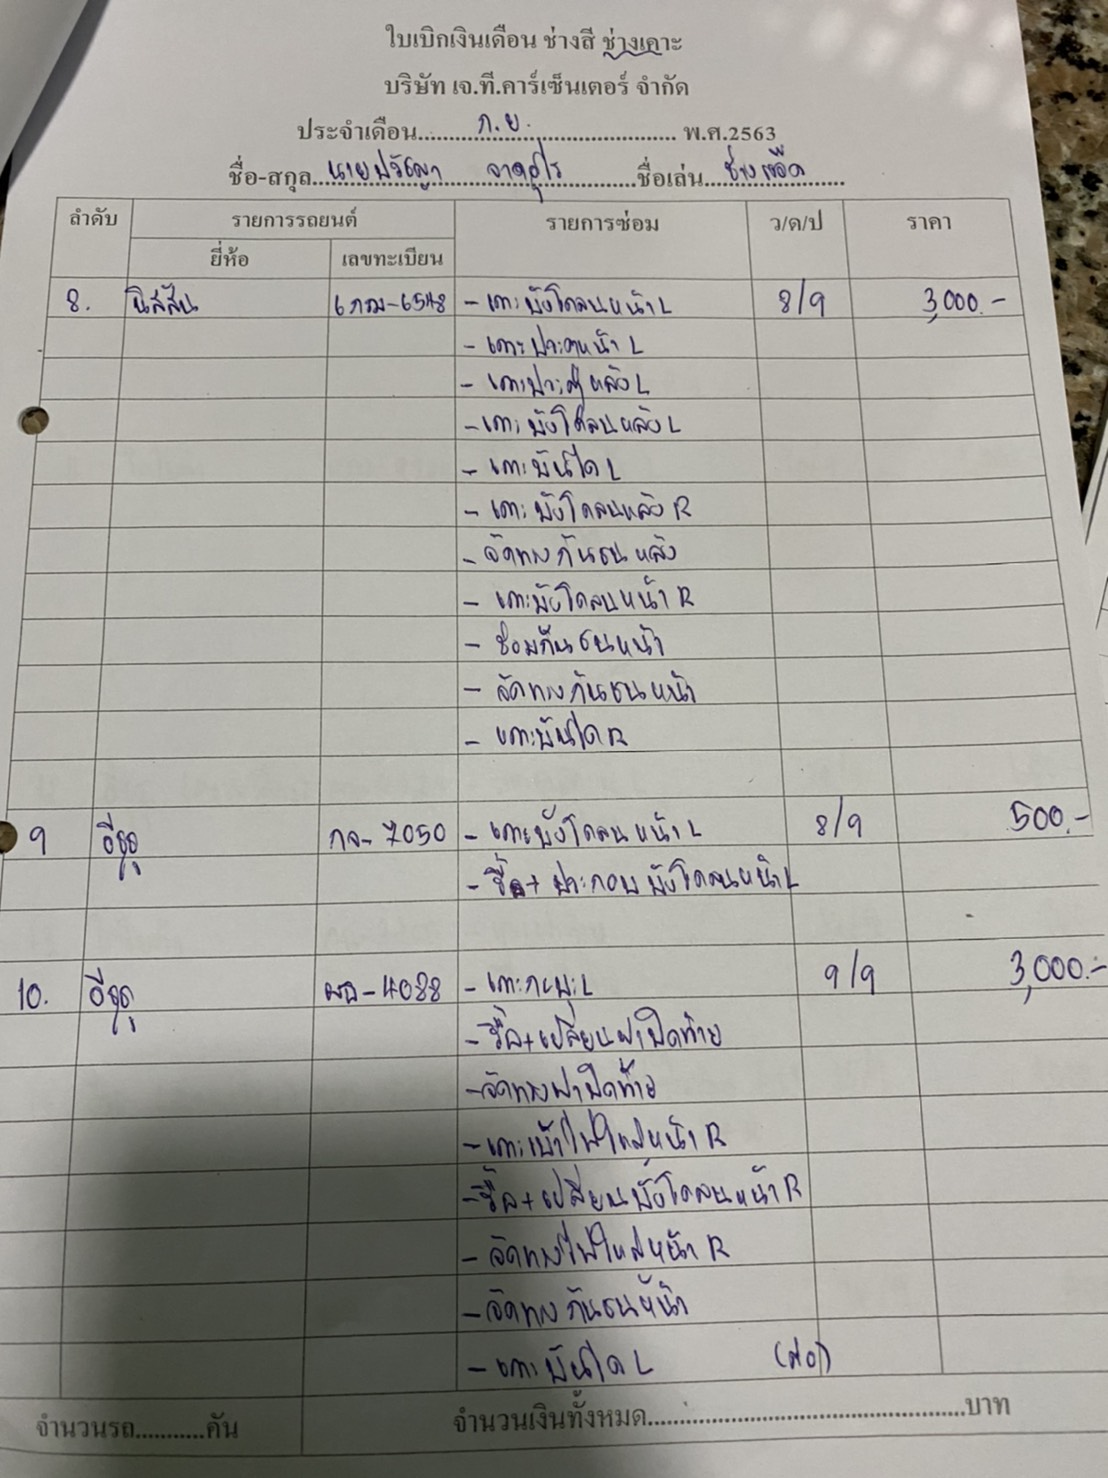 ใบเบิกเงินเดือน ช่างสี ช่างเคาะ
บริษัท เจ.ที.คาร์เซ็นเตอร์ จำกัด
ประจำเดือน.....ก.ย......พ.ศ.2563
ชื่อ-สกุล...นายปรัชญา.....ชื่อเล่น...ช่าง
ลำดับ รายการรถยนต์ รายการซ่อม ว/ด/ป ราคา
ยี่ห้อ เลขทะเบียน
8. นิสสัน 6กฌ-6548 - เคาะบังโคลนหน้า L 8/9 3,000.-
- เคาะประตูหน้า L
- เคาะประตูหลัง L
- เคาะบังโคลนหลัง L
- เคาะบันได L
- เคาะบังโคลนหลัง R
- จัดทรงกันชนหลัง
- เคาะบังโคลนหน้า R
- ซ่อมกันชนหน้า
- จัดทรงกันชนหน้า
- เคาะบันได R
9 อีซูซุ กจ-7050 - เคาะบังโคลนหน้า L 8/9 500.-
- รื้อ+ประกอบบังโคลนหน้า L
10. อีซูซุ ผฉ-4088 - เคาะกะบะ L 9/9 3,000.-
- รื้อ+เปลี่ยนฝาปิดท้าย
- จัดทรงฝาปิดท้าย
- เคาะเบ้าไฟใหญ่หน้า R
- รื้อ+เปลี่ยนบังโคลนหน้า R
- จัดทรงไฟใหญ่หน้า R
- จัดทรงกันชนหน้า
- เคาะบันได L (ต่อ)
จำนวนรถ...........คัน จำนวนเงินทั้งหมด..................................................บาท